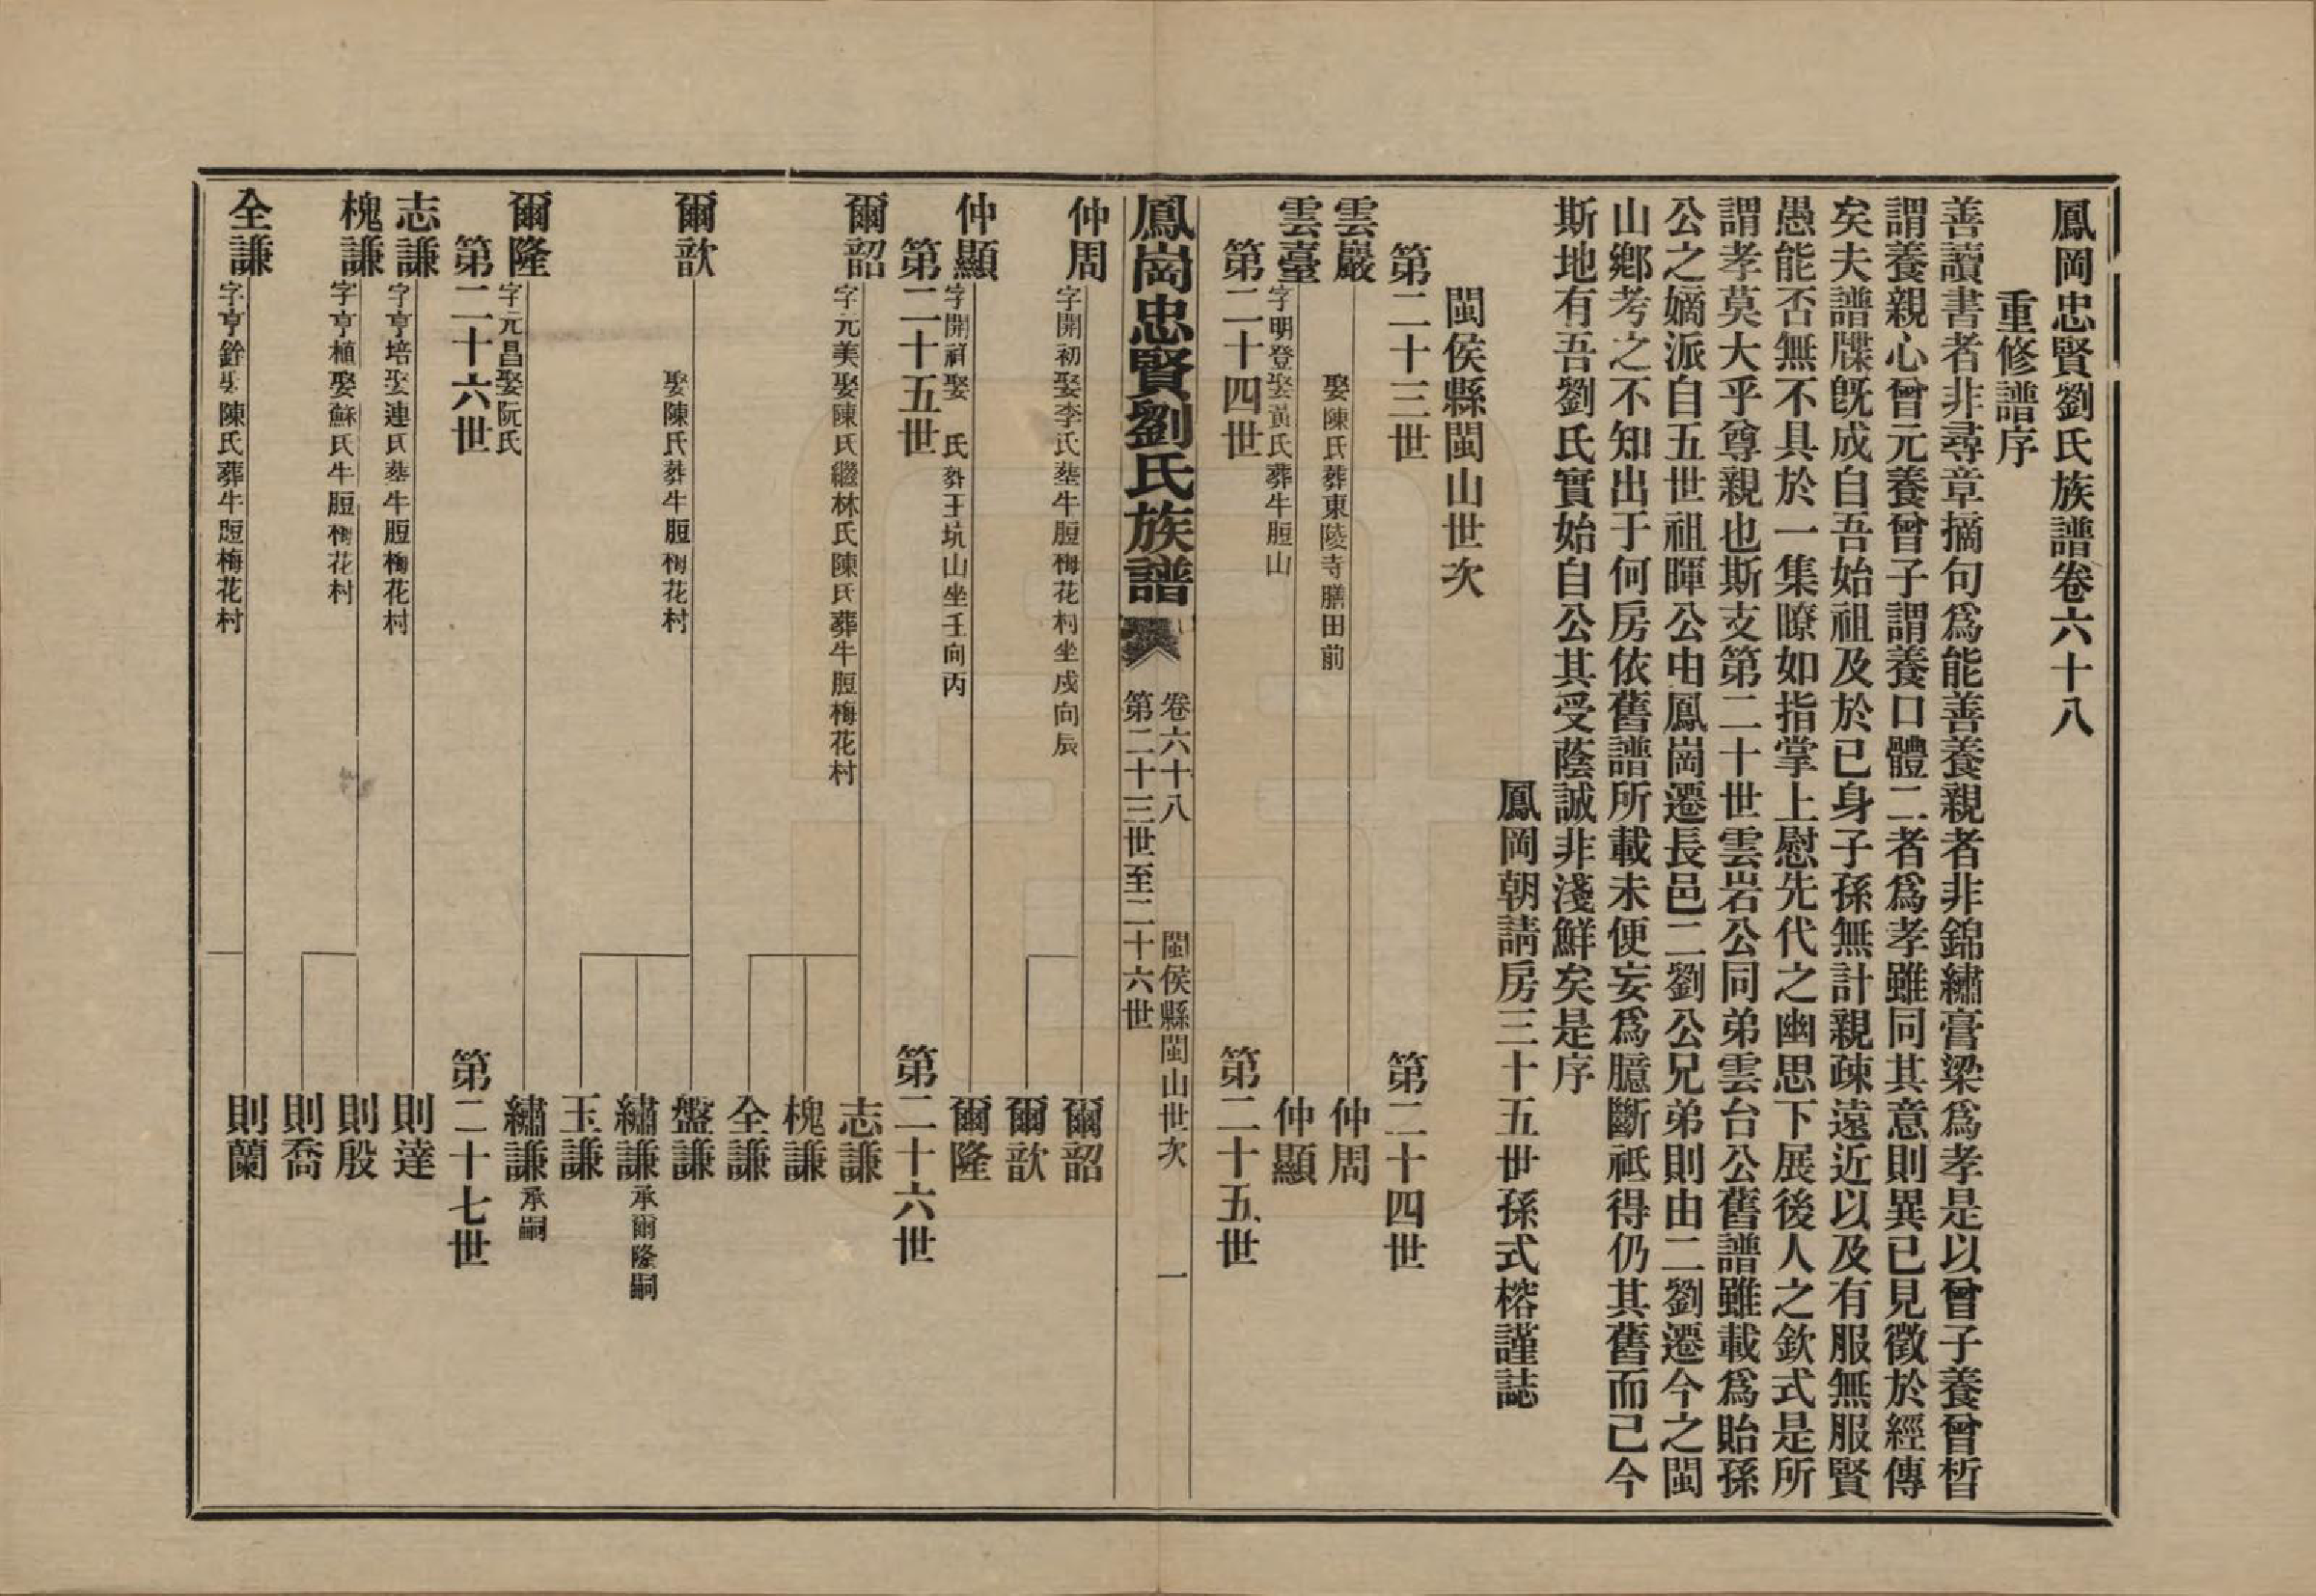 鳳岡忠賢劉氏族譜卷六十八
重修譜序
善讀書者非尋章摘句爲能善養親者非錦繡膏梁爲孝是以曾子養曾皙
謂養親心曾元養曾子謂養口體二者爲孝雖同其意則異已見徵於經傳
矣夫譜牒旣成自吾始祖及於已身子孫無計親疎遠近以及有服無服賢
愚能否無不具於一集瞭如指掌上慰先代之幽思下展後人之欽式是所
謂孝莫大乎尊親也斯支第二十世雲岩公同弟雲台公舊譜雖載爲貽孫
公之嫡派自五世祖暉公由鳳崗遷長邑二劉公兄弟則由二劉遷今之閩
山鄉考之不知出于何房依舊譜所載未便妄爲臆斷祗得仍其舊而已今
斯地有吾劉氏實始自公其受蔭誠非淺鮮矣是序
鳳岡朝請房三十五世孫式榕謹誌
閩侯縣閩山世次
第二十三世　第二十四世
雲巖　娶陳氏葬東陵寺膳田前　仲周
雲臺　字明登娶黃氏葬牛脰山　仲顯
第二十四世　第二十五世
鳳崗忠賢劉氏族譜　卷六十八　閩侯縣閩山世次　一
第二十三世至二十六世
仲周　字開初娶李氏塟牛脰梅花村坐戍向辰　爾韶
爾歆
仲顯　字開祥娶　氏葬王坑山坐壬向丙　爾隆
第二十五世　第二十六世
爾韶　字元美娶陳氏繼林氏陳氏葬牛脰梅花村　志謙
槐謙
全謙
爾歆　娶陳氏葬牛脰梅花村　盤謙
繡謙承爾隆嗣
玉謙
爾隆　字元昌娶阮氏　繡謙承嗣
第二十六世　第二十七世
志謙　字亨培娶連氏塟牛脰梅花村　則達
槐謙　字亨植娶蘇氏牛脰梅花村　則殷
則喬
全謙　字亨銓娶陳氏葬牛脰梅花村　則蘭